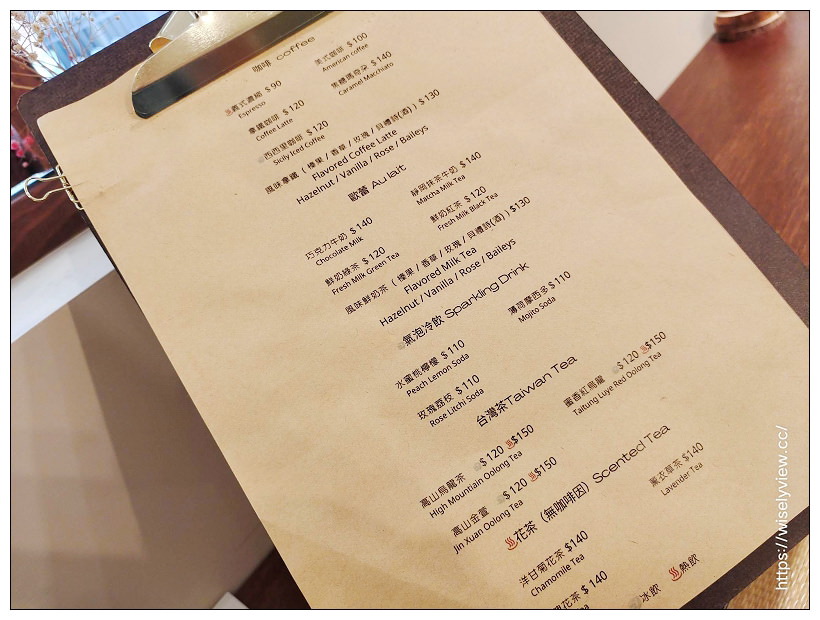 咖啡 coffee
義式濃縮 $90
Espresso
美式咖啡 $100
American coffee
拿鐵咖啡 $120
Coffee Latte
焦糖瑪奇朵 $140
Caramel Macchiato
西西里咖啡 $120
Sicily Iced Coffee
風味拿鐵 ( 榛果 / 香草 / 玫瑰 / 貝禮詩(酒) ) $130
Flavored Coffee Latte
Hazelnut / Vanilla / Rose / Baileys
歐蕾 Au lait
巧克力牛奶 $140
Chocolate Milk
靜岡抹茶牛奶 $140
Matcha Milk Tea
鮮奶綠茶 $120
Fresh Milk Green Tea
鮮奶紅茶 $120
Fresh Milk Black Tea
風味鮮奶茶 ( 榛果 / 香草 / 玫瑰 / 貝禮詩(酒) ) $130
Flavored Milk Tea
Hazelnut / Vanilla / Rose / Baileys
氣泡冷飲 Sparkling Drink
水蜜桃檸檬 $110
Peach Lemon Soda
薄荷摩西多 $110
Mojito Soda
玫瑰荔枝 $110
Rose Litchi Soda
台灣茶Taiwan Tea
高山烏龍茶 $120 $150
High Mountiain Oolong Tea
蜜香紅烏龍 $120 $150
Taitung Luye Red Oolong Tea
高山金萱 $120 $150
Jin Xuan Oolong Tea
花茶 (無咖啡因) Scented Tea
洋甘菊花茶 $140
Chamomile Tea
薰衣草茶 $140
Lavender Tea
花茶 $140
冰飲 熱飲
https://wiselyview.cc/